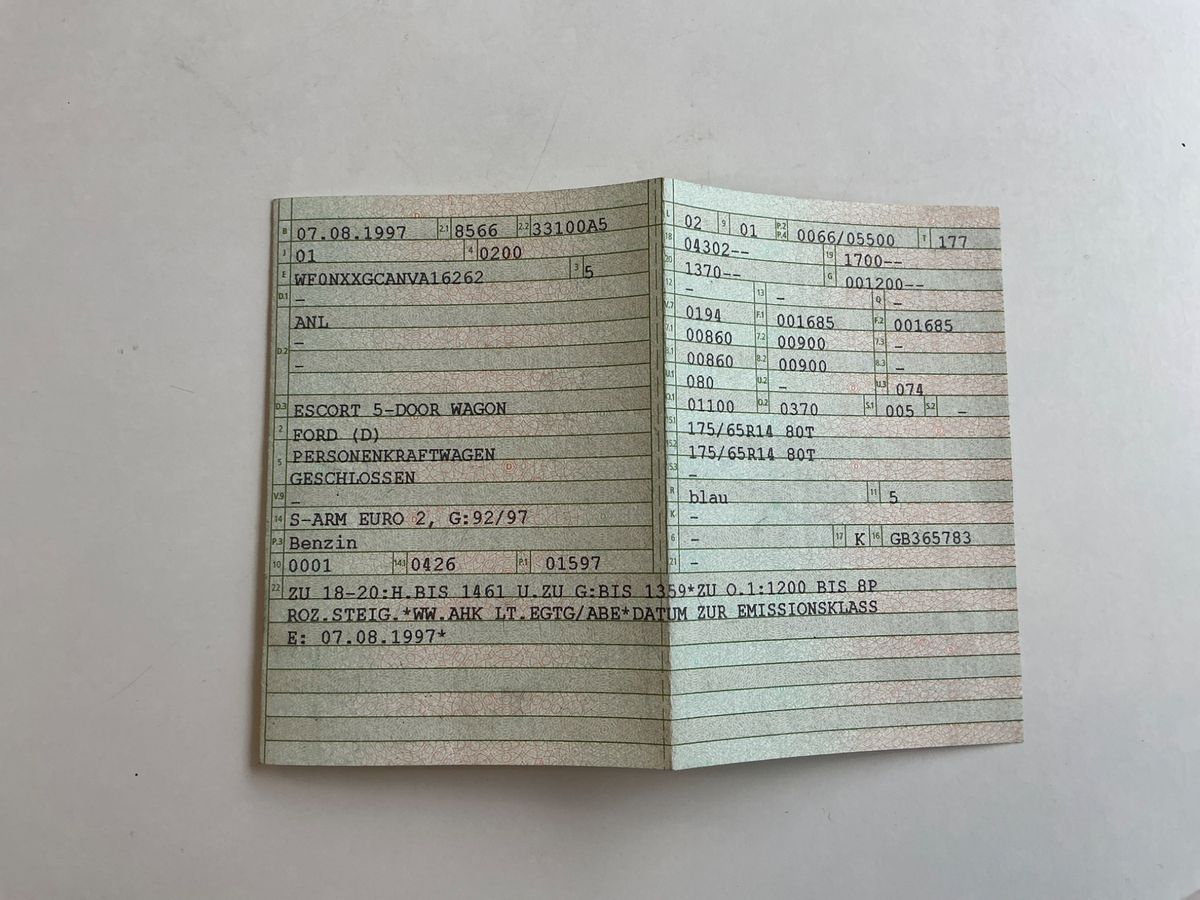 B 07.08.1997 2.1 8566 2.2 33100A5
J 01 4 0200
E WF0NXXGCANVA16262 3 5
D.1 –
ANL
–
D.2 –
D.3 ESCORT 5-DOOR WAGON
2 FORD (D)
5 PERSONENKRAFTWAGEN
GESCHLOSSEN
V.9 –
14 S-ARM EURO 2, G:92/97
P.3 Benzin
10 0001 14.1 0426 P.1 01597
L 02 9 01 P.2 P.4 0066/05500 T 177
18 04302-- 19 1700--
20 1370-- G 001200--
12 - 13 - Q -
V.7 0194 F.1 001685 F.2 001685
7.1 00860 7.2 00900 7.3 -
8.1 00860 8.2 00900 8.3 -
U.1 080 U.2 - U.3 074
O.1 01100 O.2 0370 S.1 005 S.2 -
15.1 175/65R14 80T
15.2 175/65R14 80T
15.3 –
R blau 11 5
K –
6 - 17 K 16 GB365783
21 –
22 ZU 18-20:H.BIS 1461 U.ZU G:BIS 1359*ZU O.1:1200 BIS 8P
ROZ.STEIG.*WW.AHK LT.EGTG/ABE*DATUM ZUR EMISSIONSKLASS
E: 07.08.1997*